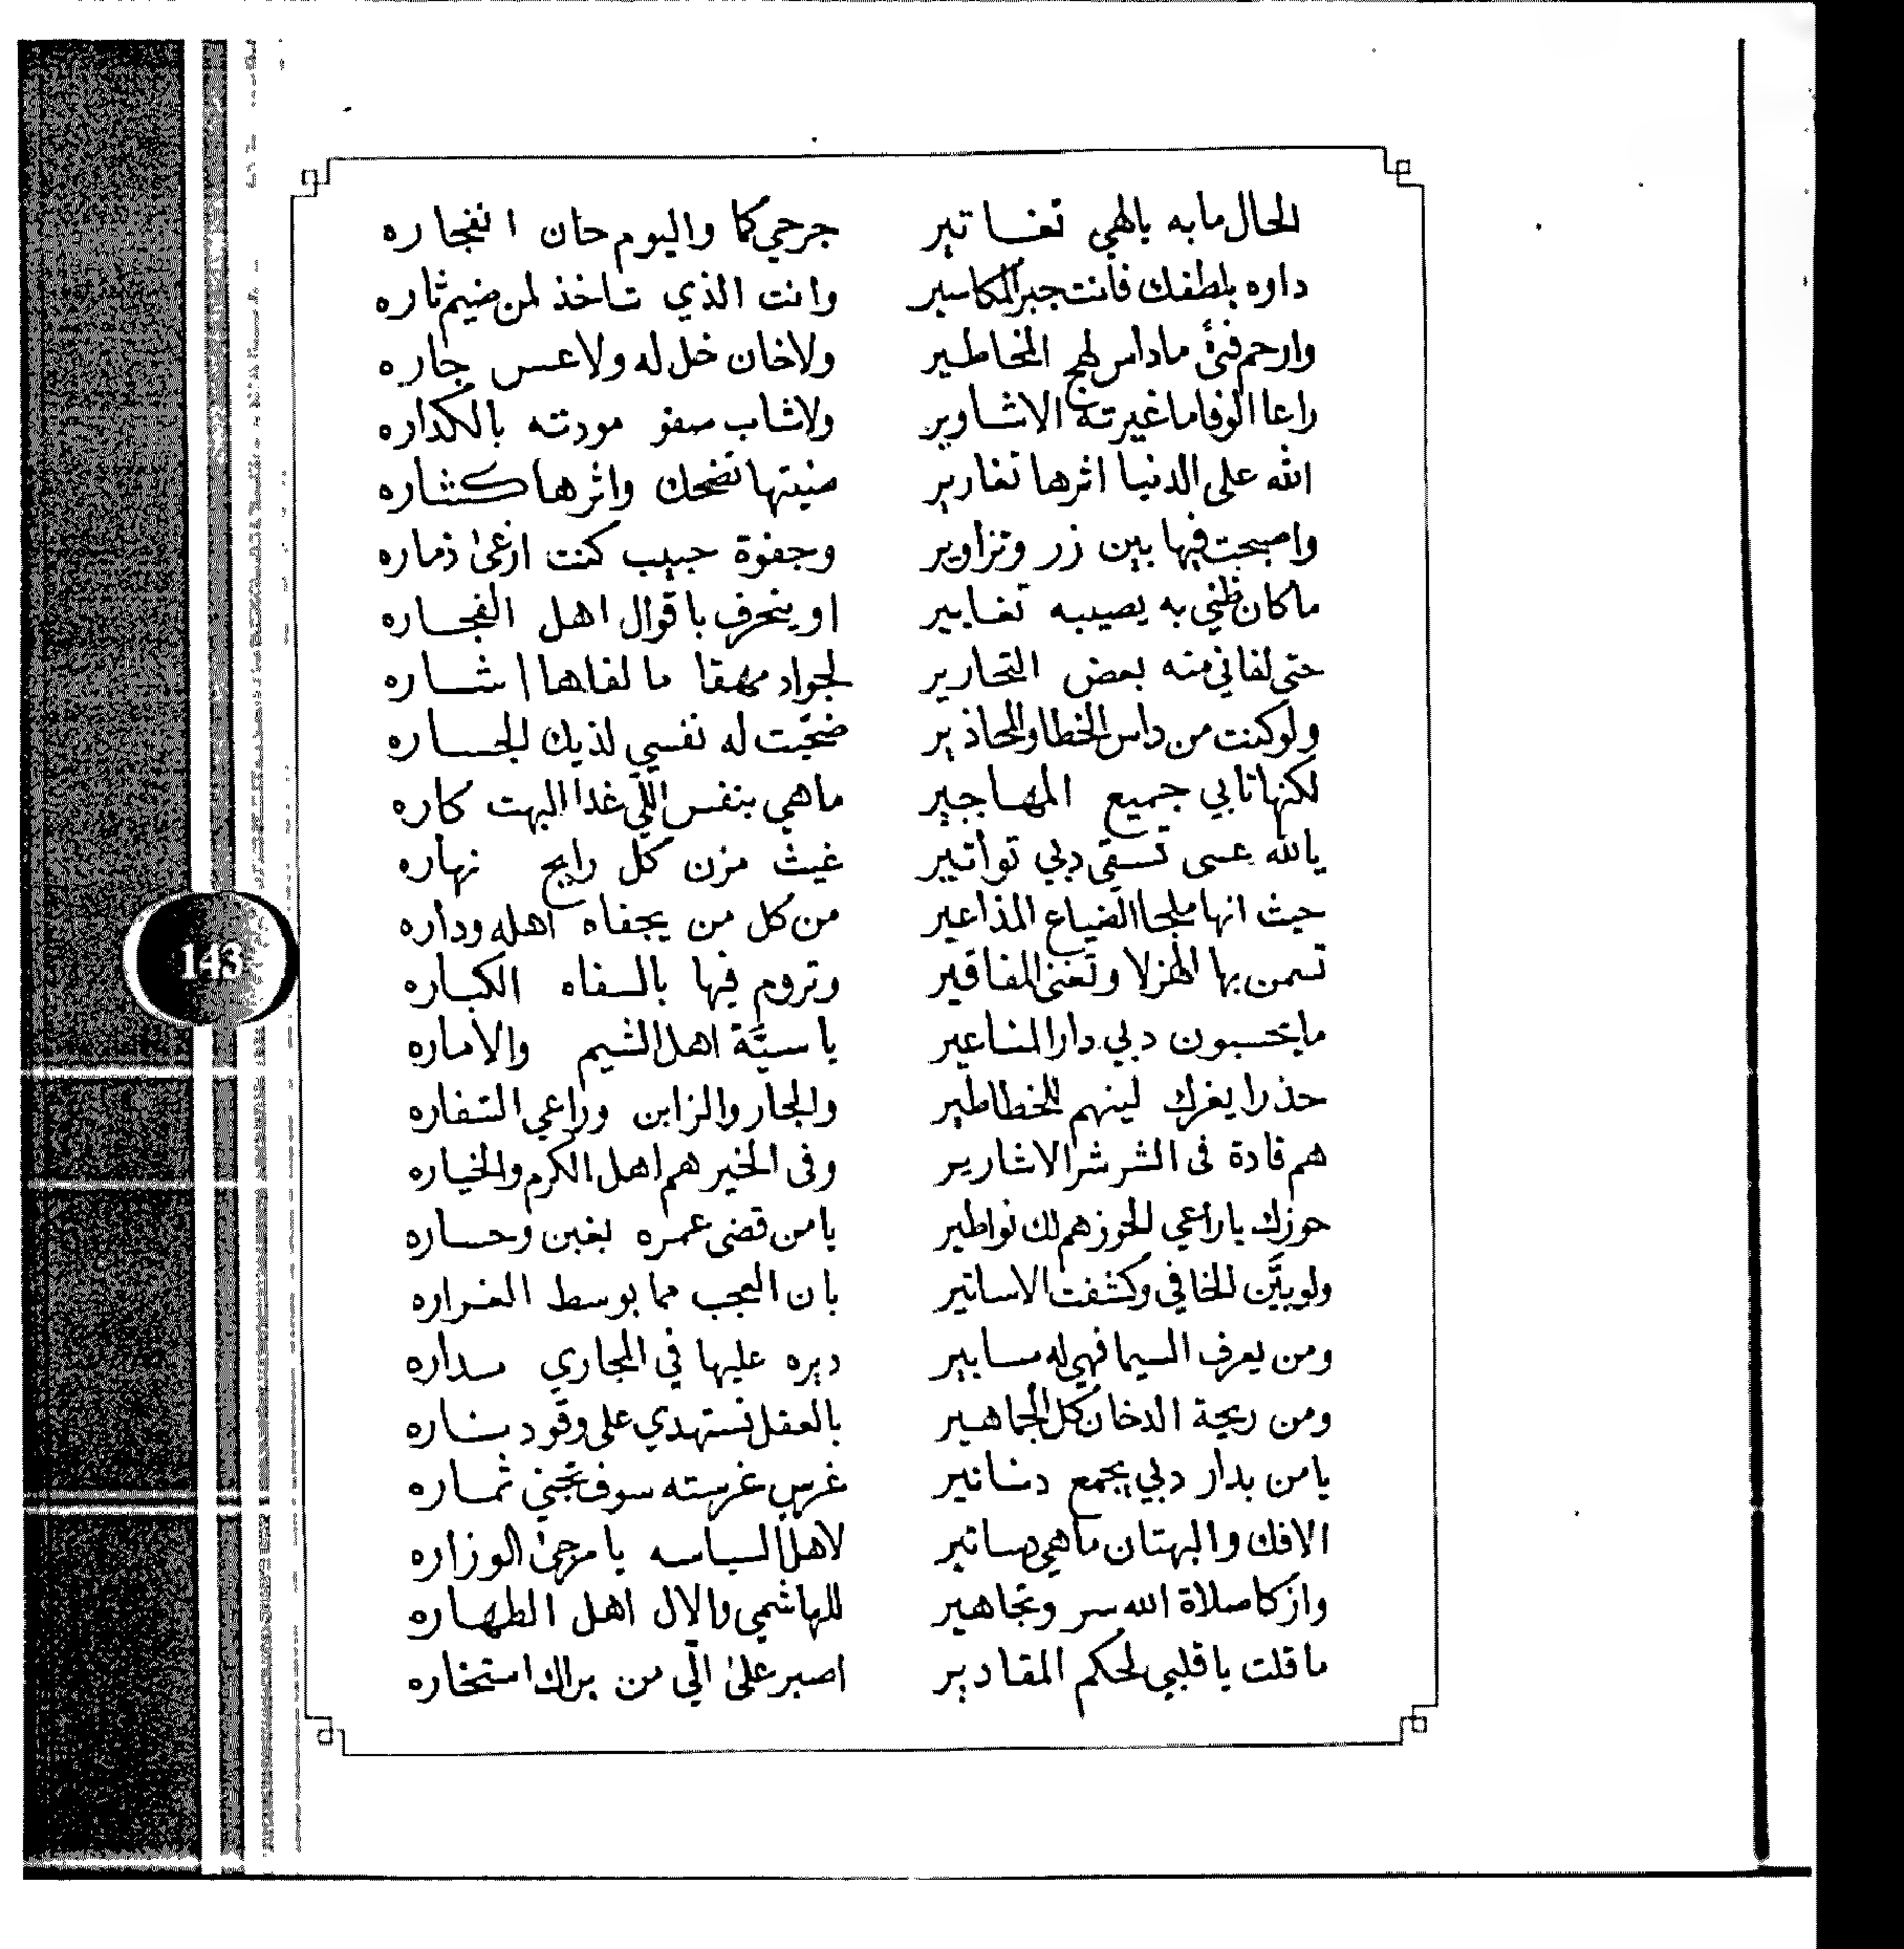 الحال مابه يالهي تغـاتير جرحي كما واليوم حان انفجاره
داره بلطفك فانت جبر المكاسير وانت الذي تـاخذ لمن ضيم ثاره
وارحم فتىً ماداس لهج المخاطير ولاخان خل له ولاعس جاره
راعا الوفا ماغيرته الاشـاوير ولاشاب صفو مودته بالكداره
الله على الدنيا اثرها تغارير ضنيتها تضحك واثرها كـشاره
واصبحت فيها بين زر وتزاوير وجفوة حبيب كنت ارعىٰ ذماره
ماكان ظني به يصيبه تغـايير او ينحرف باقوال اهل الفجـاره
حتى لفاني منه بعض التحارير لجواد مهقا ما لفاها اشـاره
ولو كنت من داس الخطا والمحاذير ضحّيت له نفسي لذيك الجسـاره
لكنها تابي جميع المهـاجير ماهي بنفس اللّي غدا البهت كاره
يالله عسى تسقى دبي تواتير غيث مزن كل رايح نهاره
حيث انها ملجا الضياع المذاعير من كل من يجفاه اهله وداره
تسمن بها الهزلا وتغنى المفاقير وتروم فيها بالسفاه الكباره
مايحسبون دبي دار المناعير ياسيّة اهل الشيم والاماره
حذرا يغرك لينهم للخطاطير والجار والزابن وراعي السفاره
هم قادة فى الشر شر الاشارير وفى الخير هم اهل الكرم والخياره
حوزك ياراعي الحوز هم لك نواطير يامن قضى عمره بغبن وحساره
ولو بيَّن الخافي وكشفت الاساتير بان العجب مما بوسط الغـراره
ومن يعرف السيما فهي له مسـابير ديره عليها في المجاري سـداره
ومن ريحة الدخان كل الجماهـير بالعقل تستهدي على وقود بنـاره
يامن بدار دبي يجمع دنـانير غرس غرسته سوف تجني ثمـاره
الافك والبهتان ماهي دساتير لاهل السياسه يامرجىٰ الوزاره
وازكا صلاة الله سر وتجاهير للهاشمي والال اهل الطهـاره
ماقلت ياقلبي لحكم المقادير اصبر علىٰ الّي من براك استخاره
143